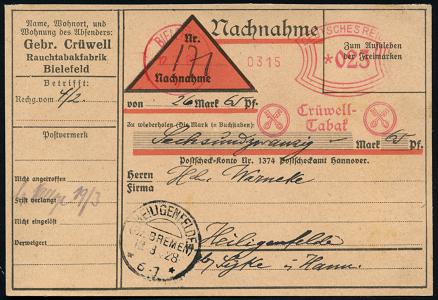 Name, Wohnort, und
Wohnung des Absenders:
Gebr. Crüwell
Rauchtabakfabrik
Bielefeld
Betrifft:
Rechg. vom 4/2.
Postvermerk
Nicht angetroffen
Frist verlangt
Nicht eingelöst
Verweigert
Nachnahme
Nr.
171
Nachnahme
BIEL
0315
DEUTSCHES REICH
*023
Zum Aufkleben
der Freimarken
von 26 Mark 65 Pf.
Zu wiederholen: (Die Mark in Buchstaben):
Crüwell-
Tabak
Sechsundzwanzig Mark 65 Pf.
Postscheck-Konto Nr. 1374 Postscheckamt Hannover.
Herrn
Firma
Warneke
HEILIGENFELDE
(BZ. BREMEN)
12.3.28
Heiligenfelde
b/ Syke i. Hann.